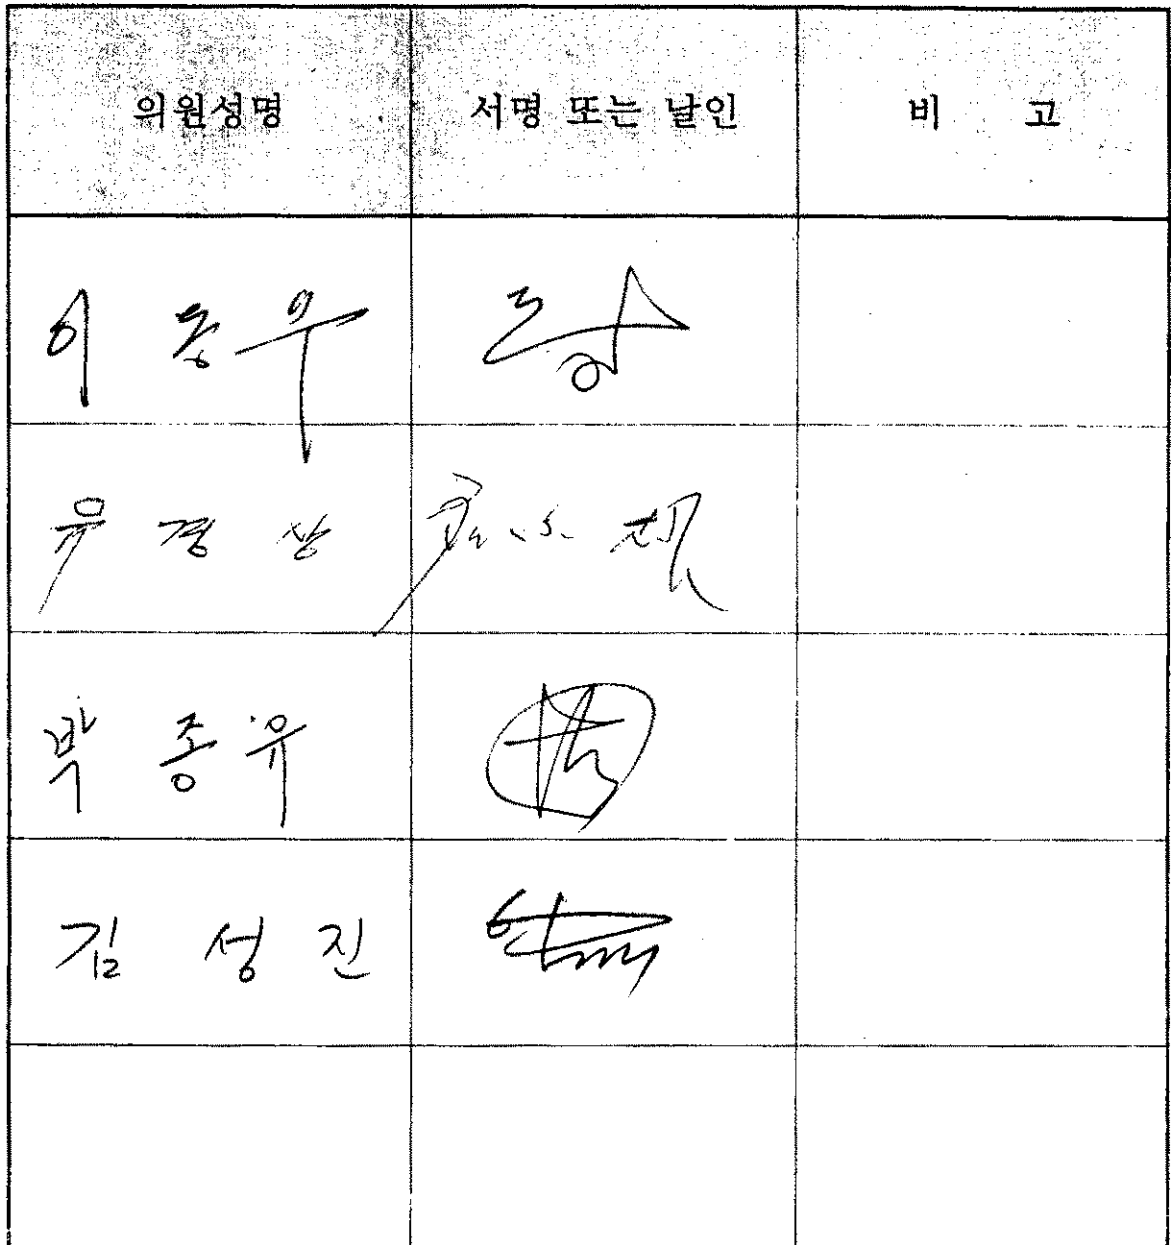 의원성명 서명 또는 날인 비 고
이 동우
유 경 상
박 종 유
김 성 진